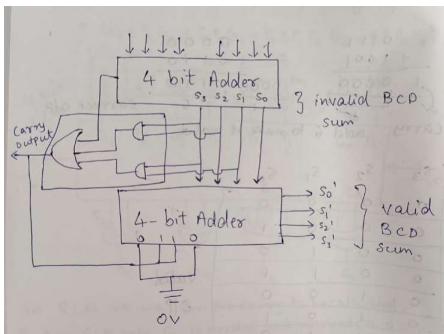 4 bit Adder
S3 S2 S1 S0
} invalid BCD
sum
Carry
output
4-bit Adder
0 1 1 0
S0'
S1'
S2'
S3'
} valid
BCD
sum
0V